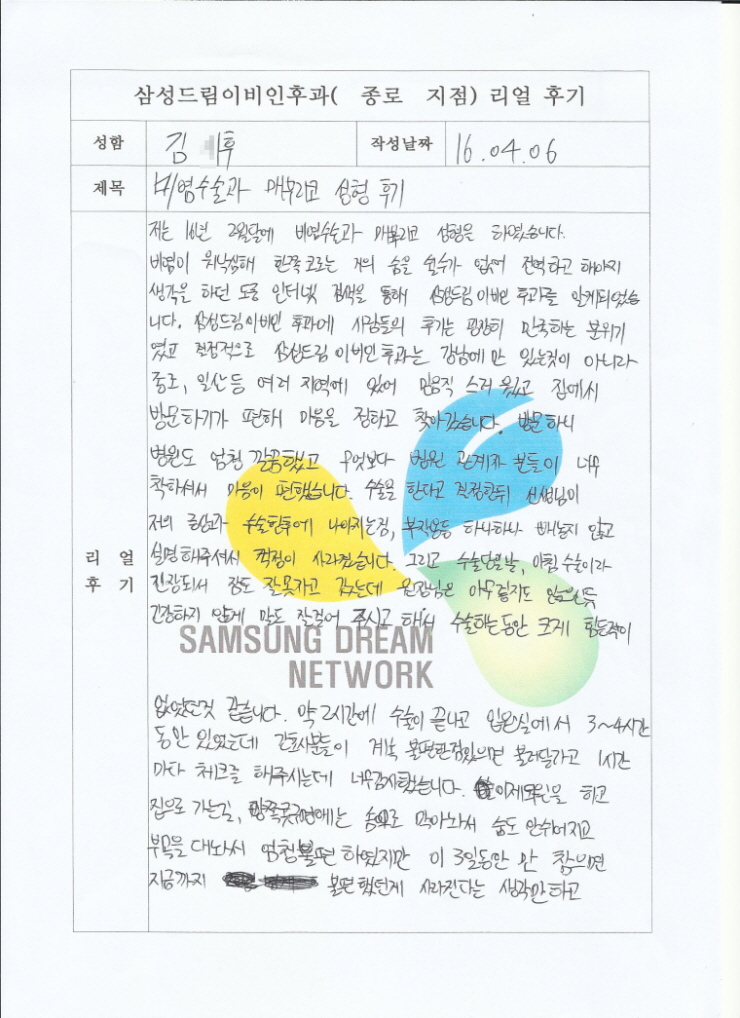 삼성드림이비인후과( 종로 지점) 리얼 후기
성함 김 후 작성날짜 16.04.06
제목 비염수술과 매부리코 성형 후기
저는 16년 2월달에 비염수술과 매부리코 성형을 하였습니다.
비염이 워낙심해 한쪽코로는 거의 숨을 쉴수가 없어 전역하고 해야지
생각을 하던 도중 인터넷 검색을 통해 삼성드림이비인후과를 알게되었습
니다. 삼성드림이비인후과에 사람들의 후기는 굉장히 만족하는 분위기
였고 결정적으로 삼성드림이비인후과는 강남에만 있는것이 아니라
종로, 일산등 여러 지역에 있어 믿음직 스러웠고 집에서
방문하기가 편해 마음을 정하고 찾아갔습니다. 방문하니
병원도 엄청 깔끔했고 무엇보다 병원 관계자 분들이 너무
착하셔서 마음이 편했습니다. 수술을 한다고 결정한뒤 선생님이
저의 증상과 수술한후에 나아지는점, 부작용등 하나하나 빼놓지 않고
리얼 후기
설명해주셔서 걱정이 사라졌습니다. 그리고 수술당일날, 아침 수술이라
긴장되서 잠도 잘못자고 갔는데 원장님은 아무렇지도 않은듯
긴장하지 않게 말도 잘걸어 주시고 해서 수술하는동안 크게 힘든적이
SAMSUNG DREAM
NETWORK
없었던것 같습니다. 약 2시간에 수술이 끝나고 입원실에서 3~4시간
동안 있었는데 간호사분들이 계속 불편한점있으면 불러달라고 1시간
마다 체크를 해주시는데 너무감사했습니다. 이제퇴원을 하고
집으로 가는길, 양쪽콧구멍에는 솜으로 막아놔서 숨도 안쉬어지고
부목을 대놔서 엄청불편 하였지만 이 3일동안 만 참으면
지금까지 불편했던게 사라진다는 생각만하고